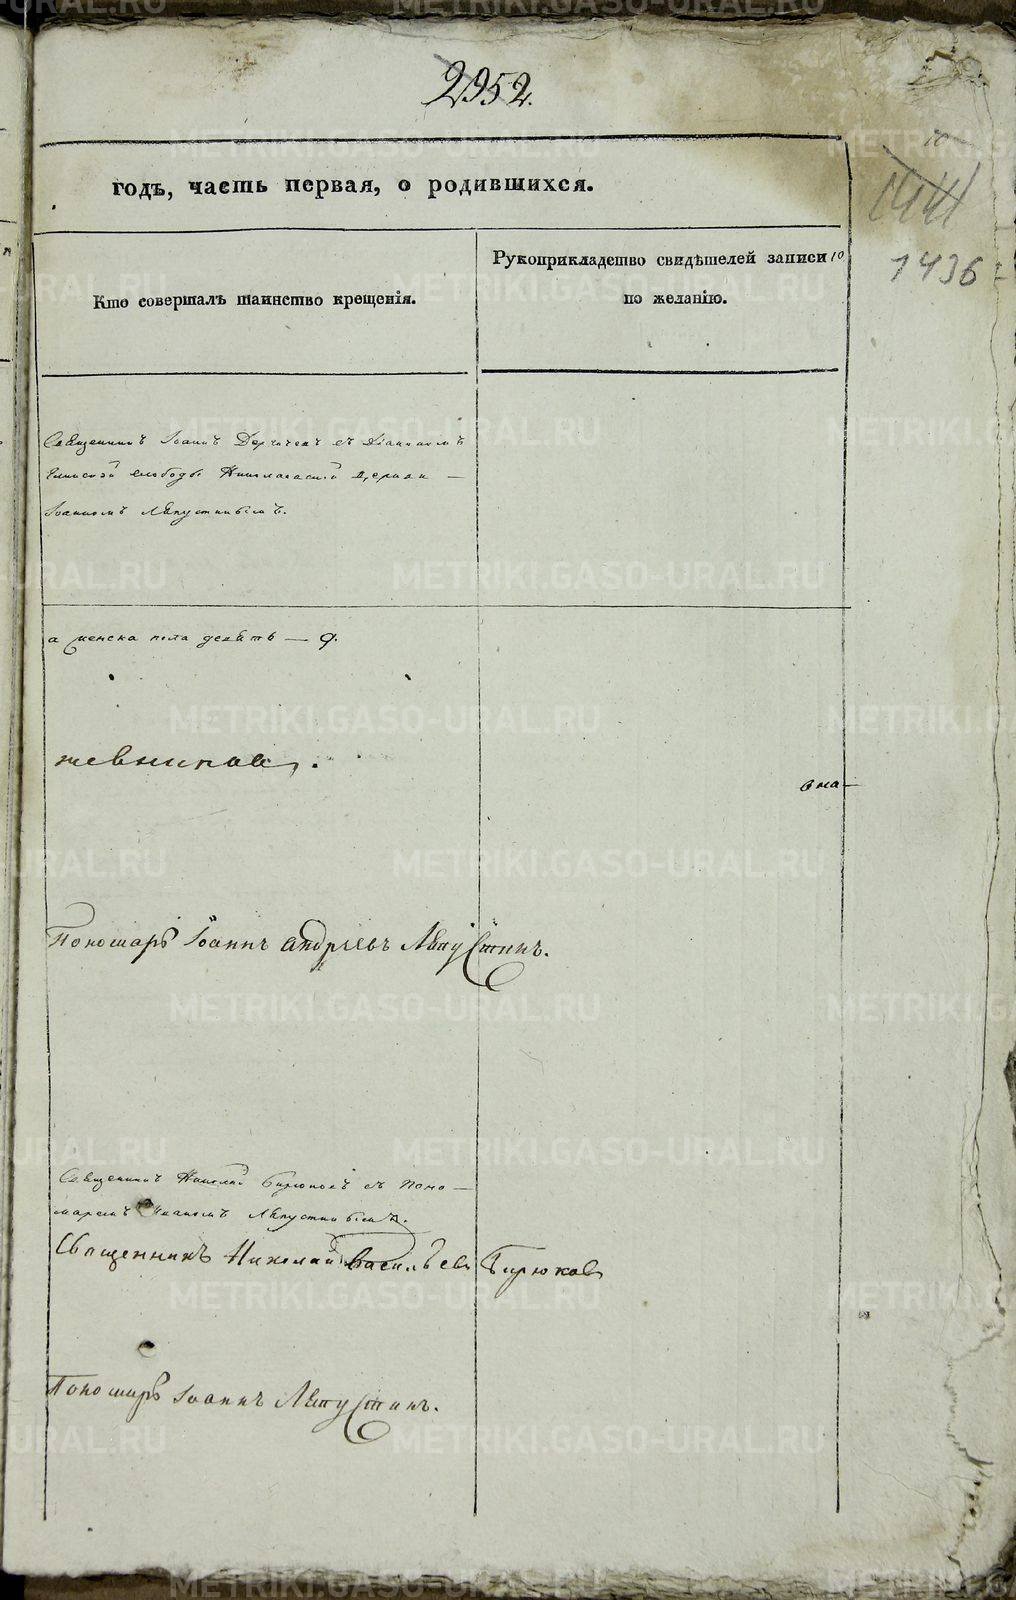 2952.
годъ, часть первая, о родившихся.
1436
Кто совершалъ таинство крещенія.
Рукоприкладство свидѣтелей записи
по желанію.
Священникъ Іоаннъ съ Діакономъ
слободы Николаевской церкви —
Іоанномъ Лѣпустинымъ.
а женска пола девять — 9.
жевниковъ.
она—
Пономарь Іоаннъ Андреевъ Лѣпустинъ.
Священникъ Николай Бирюковъ съ Поно—
маремъ Иваномъ Лѣпустинымъ.
Священникъ Николай Васильевъ Бирюковъ
Пономарь Іоаннъ Лѣпустинъ.
METRIKI.GASO-URAL.RU